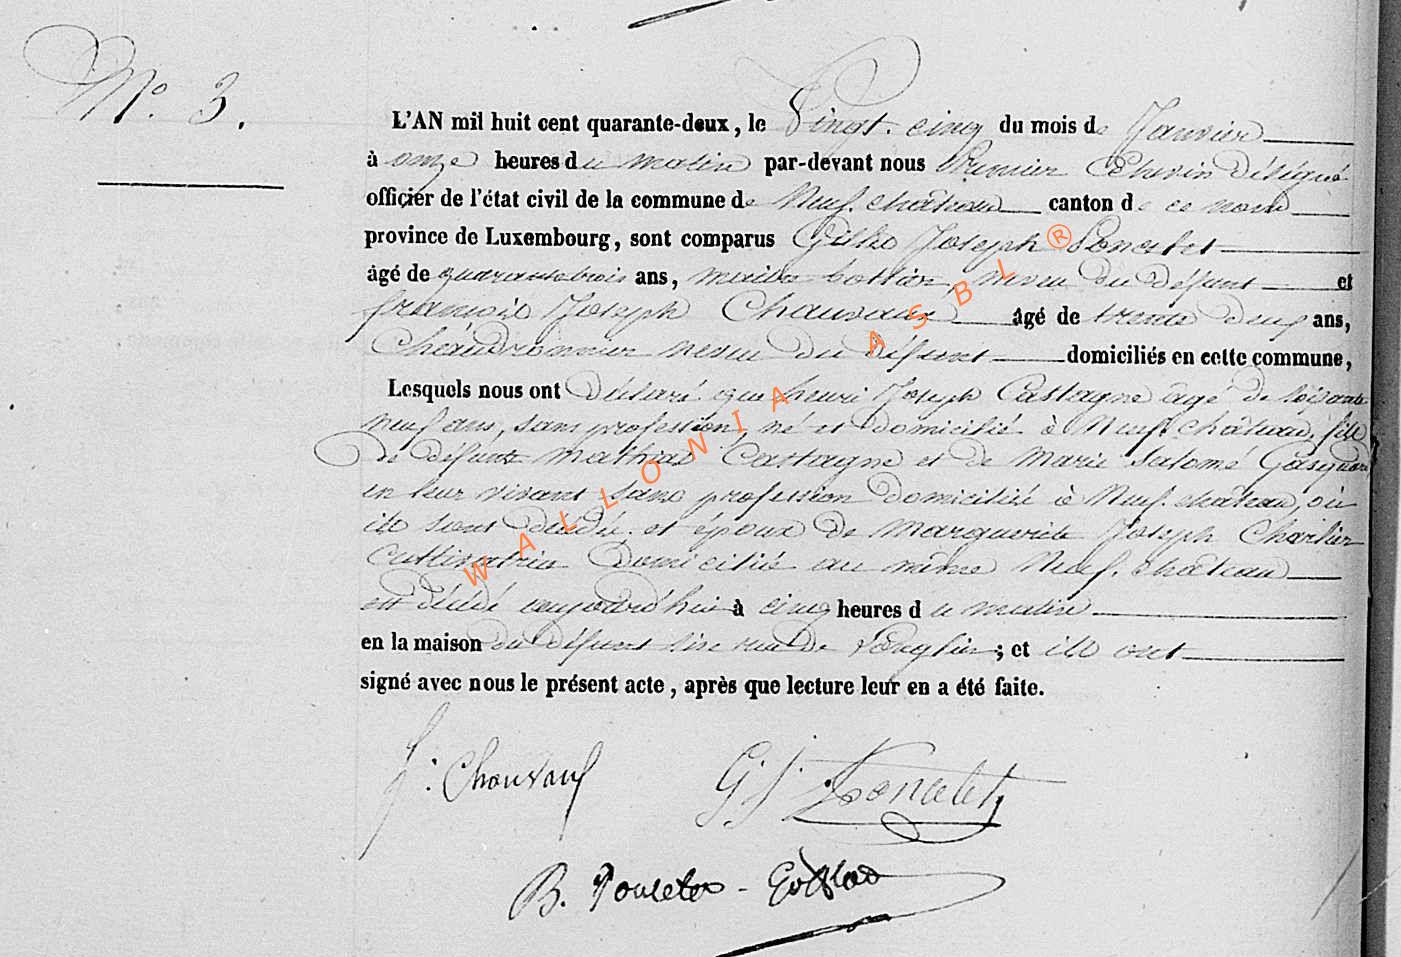 N° 3.
L'AN mil huit cent quarante-deux, le Vingt. cinq du mois de Janvier
à onze heures du matin par-devant nous Premier Echevin délégué
officier de l'état civil de la commune de Neuf. château canton de ce nom
province de Luxembourg, sont comparus Joseph Poncelet
âgé de quarante trois ans, neveu du défunt et
françois Joseph Chauvaux âgé de trente deux ans,
Chaudronnier neveu du défunt domiciliés en cette commune,
Lesquels nous ont déclaré que henri Joseph Castagne agé de soixante
neuf ans, sans profession, né et domicilié à Neuf. château, fils
de défunts Mathias Castagne et de Marie Salomé
en leur vivant sans profession domiciliés à Neuf. château, où
ils sont décédés et époux de Marguerite Joseph Charlier
Cultivatrice domiciliée au même Neuf. château
est décédé aujourd'hui à cinq heures du matin
en la maison du défunt sise rue de ; et ils ont
signé avec nous le présent acte, après que lecture leur en a été faite.
f. Chauvaux G. J. Poncelet
B. Pouselet
WALLONIA ASBL ®